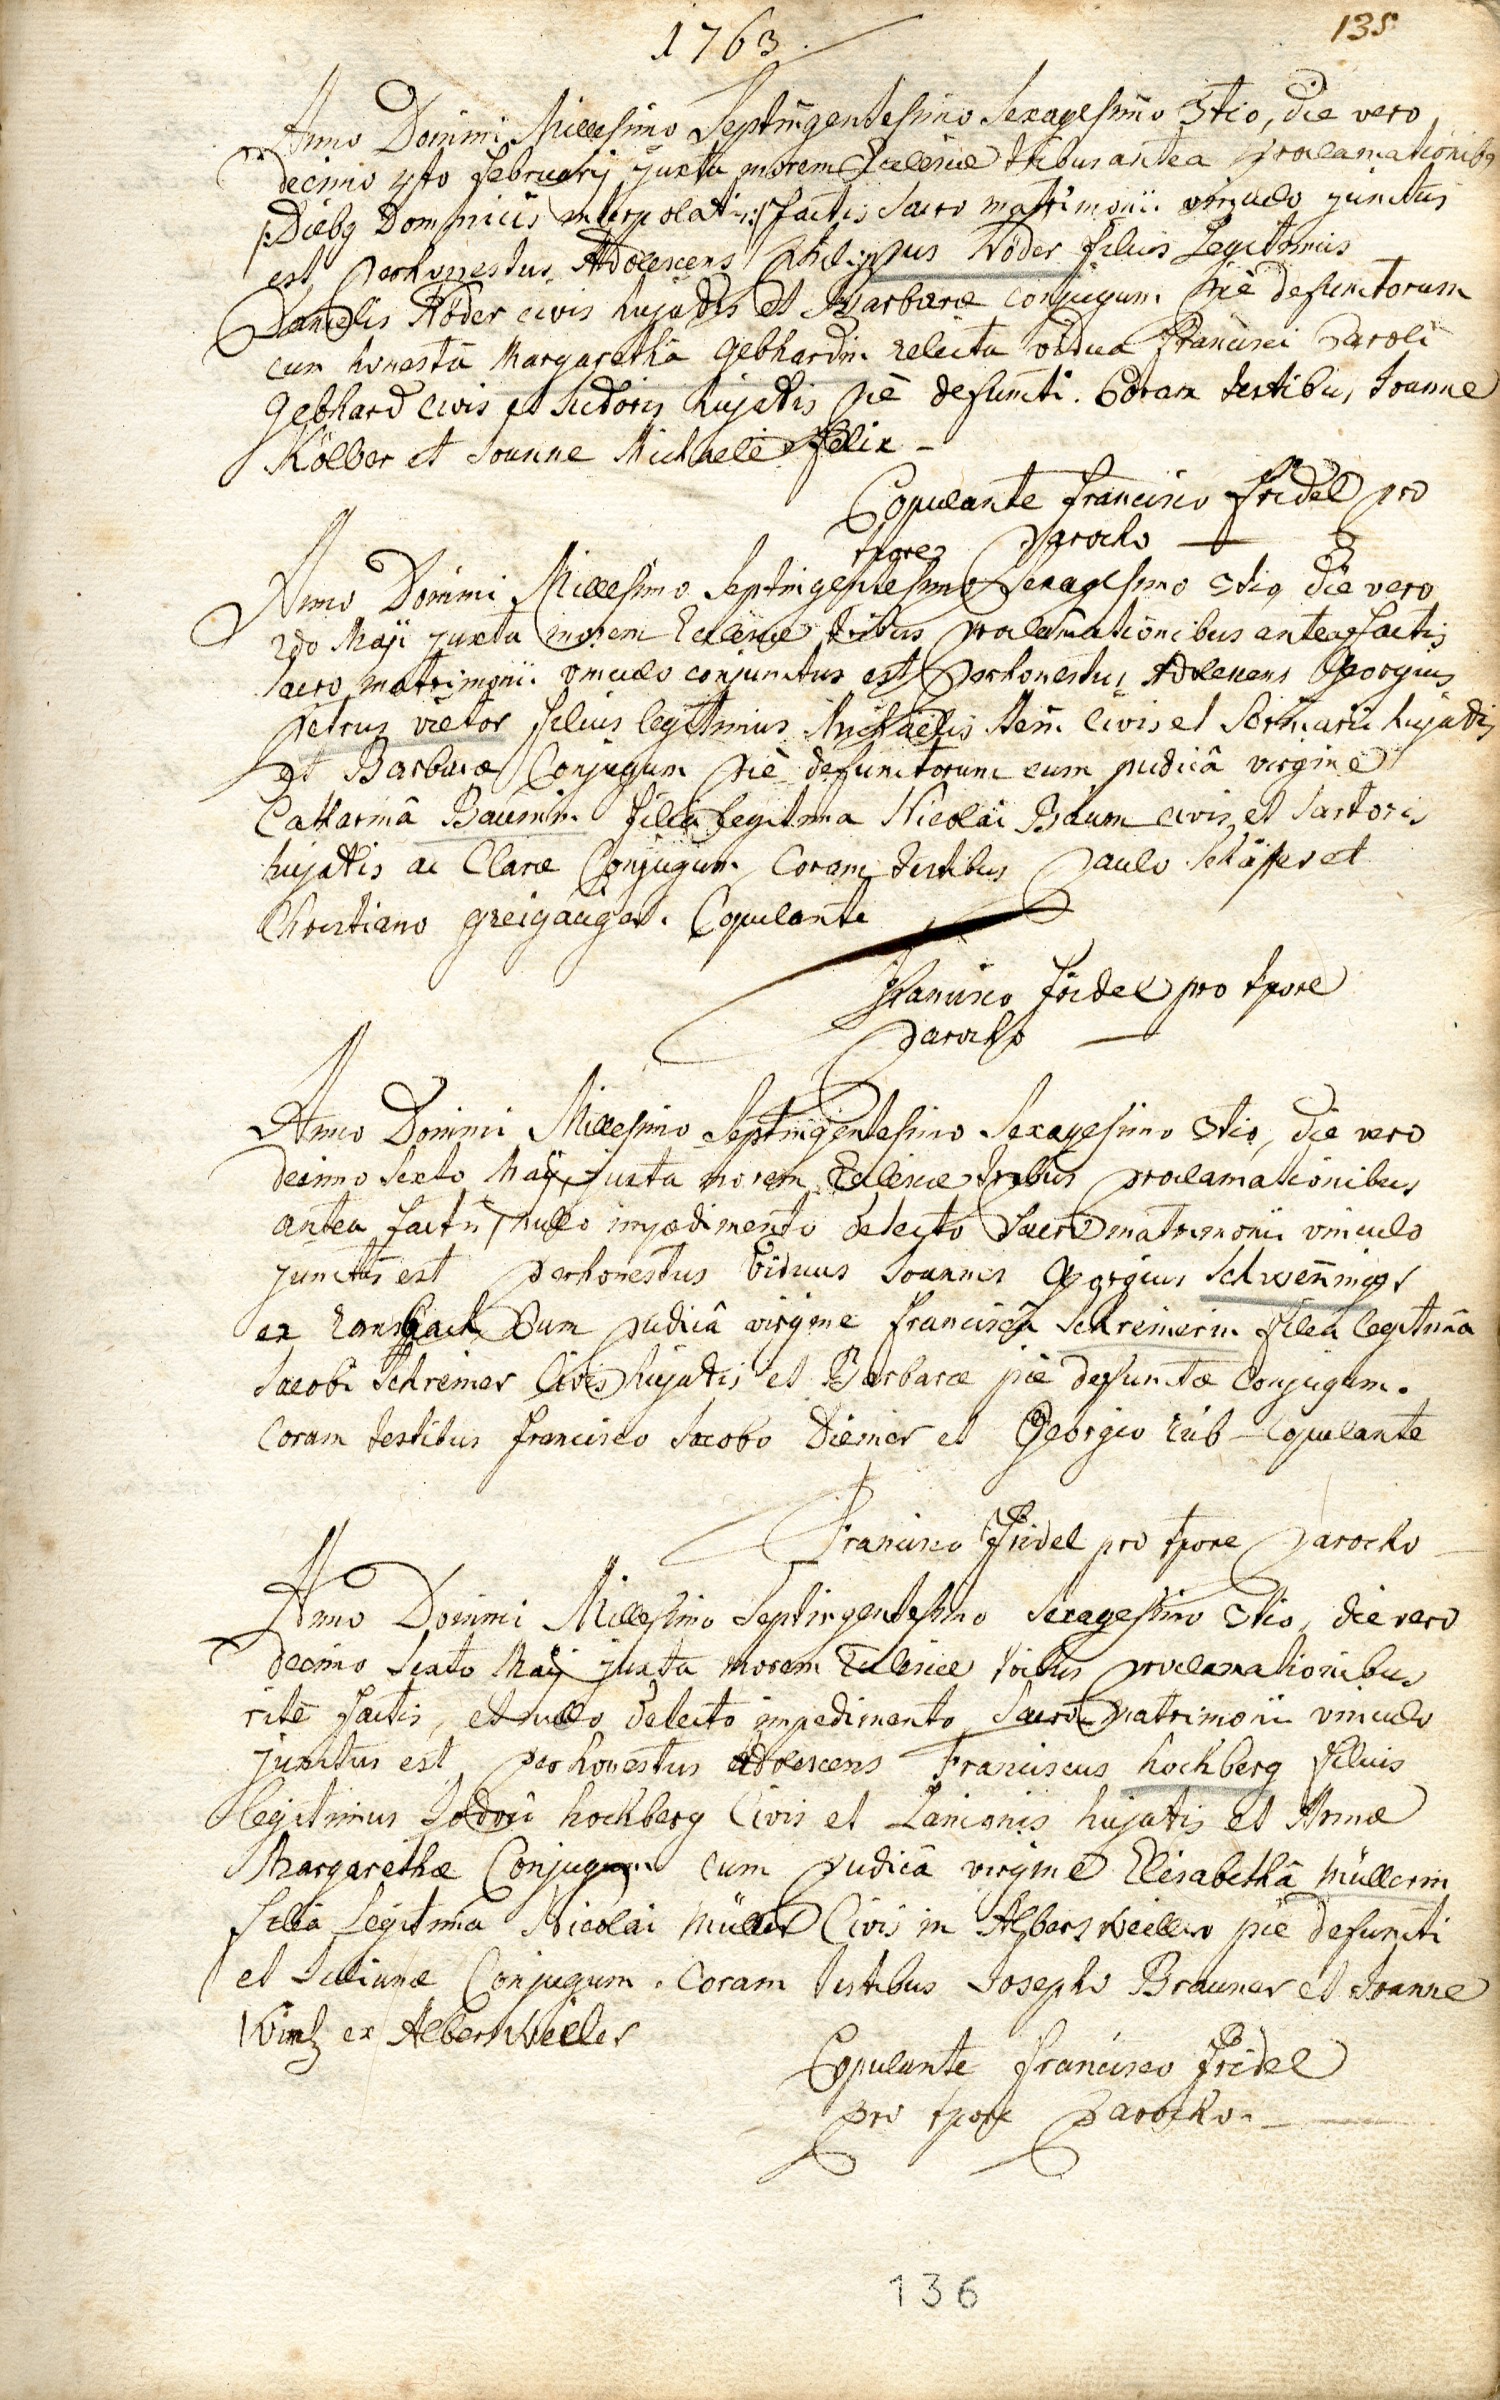 1763.
135
Anno Domini Millesimo Septingentesimo Sexagesimo 3tio, die vero
decimo 4to February juxta morem Eclesiae tribus antea proclamationibq
/:Diebq Dominicis interpolat:/ factis Sacro matrimonii vinculo junctus
est perhonestus Adolescens Philippus Röder filius Legitimus
Danielis Röder civis hujatis et Barbarae conjugum piè defunctorum
cum honestâ Margarethâ Gebhardin relicta vidua Francisci Caroli
Gebhard civis et Sutoris hujatis piè defuncti. Coram testibus Joanne
Kölber et Joanne Michaele Felix -
Copulante Francisco Fridel pro
tpore parocho —
Anno Domini Millesimo Septingentesimo Sexagesimo 3tio, die vero
2do Maji juxta morem Eclesiae tribus proclamationibus antea factis
sacro matrimonii vinculo conjunctus est perhonestus Adolescens Georgius
Petrus victor filius legitimus Michaelis civis et hujatis
et Barbarae Conjugum piè defunctorum cum pudicâ virgine
Catharinâ Baumin filia legitima Nicolai Baum civis et Sartoris
hujatis ac Clarae Conjugum Coram testibus Paulo Schäffer et
Christiano greigauger. Copulante
Francisco Fridel pro tpore
parocho —
Anno Domini Millesimo Septingentesimo Sexagesimo 3tio, die vero
decimo sexto Maji, juxta morem Eclesiae tribus proclamationibus
antea factis nullo impedimento detecto Sacro matrimonii vinculo
junctus est perhonestus viduus Joannes Georgius Schwenninger
ex Ransbach Cum pudicâ virgine Franciscâ Schreinerin filia legitimâ
Jacobi Schreiner Civis hujatis et Barbarae piè defunctae Conjugum.
Coram testibus Francisco Jacobo Diemer et Georgio - Copulante
Francisco Fridel pro tpore Parocho —
Anno Domini Millesimo Septingentesimo Sexagesimo 3tio, die vero
decimo sexto Maji juxta morem Eclesiae tribus proclamationibus
rite factis, et nullo detecto impedimento Sacro matrimonii vinculo
junctus est perhonestus adolescens Franciscus hochberg filius
legitimus Jodoci hochberg Civis et Lanionis hujatis et Annae
Margarethae Conjugum cum pudicâ virgine Elisabethâ Müllerin
filia Legitima Nicolai Müller Civis in Albersweiller piè defuncti
et Julianae Conjugum. Coram testibus Josepho Brauner et Joanne
ex Albersweiller
Copulante Francisco Fridel
pro tpore parocho. —
136